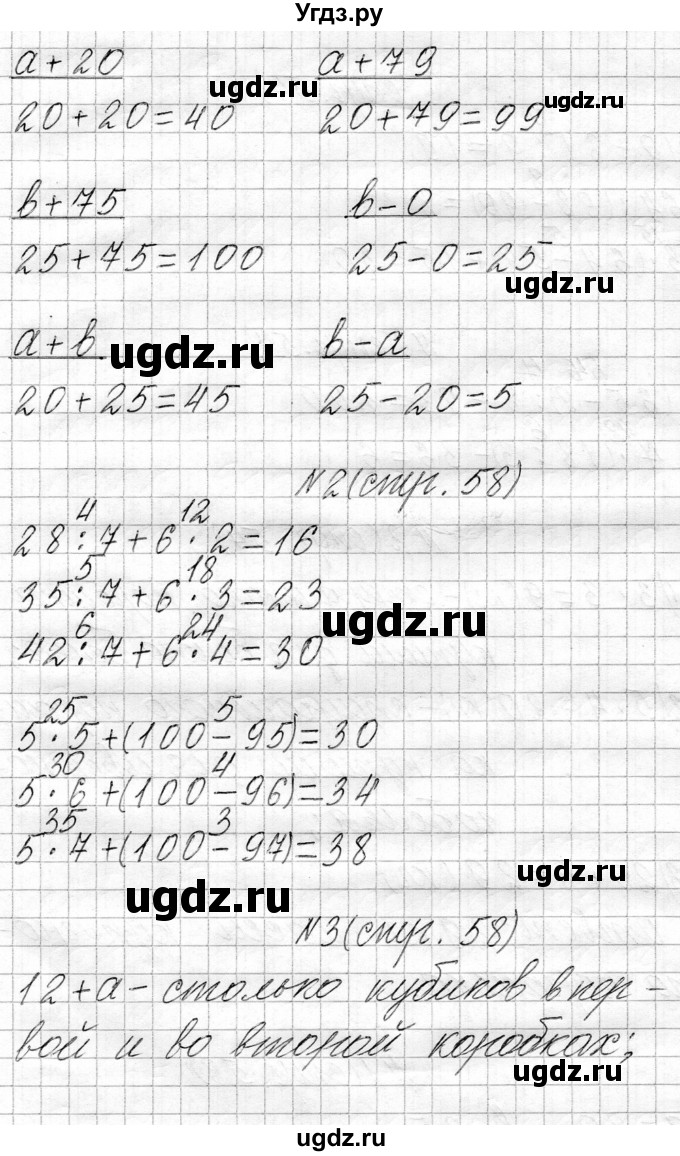 Угдз.ру
a + 20 a + 79
ugdz.ru ugdz.ru
20 + 20 = 40 20 + 79 = 99
b + 75 b - 0
25 + 75 = 100 25 - 0 = 25
ugdz.ru
a + b b - a
ugdz.ru
20 + 25 = 45 25 - 20 = 5
№2 (стр. 58)
4 12
28 : 7 + 6 · 2 = 16
5 18
35 : 7 + 6 · 3 = 23
ugdz.ru
6 24
42 : 7 + 6 · 4 = 30
25 5
5 · 5 + (100 - 95) = 30
30 4
5 · 6 + (100 - 96) = 34
35 3
5 · 7 + (100 - 97) = 38
ugdz.ru
№3 (стр. 58)
12 + a - столько кубиков в пер-
вой и во второй коробках;
ugdz.ru
ugdz.ru